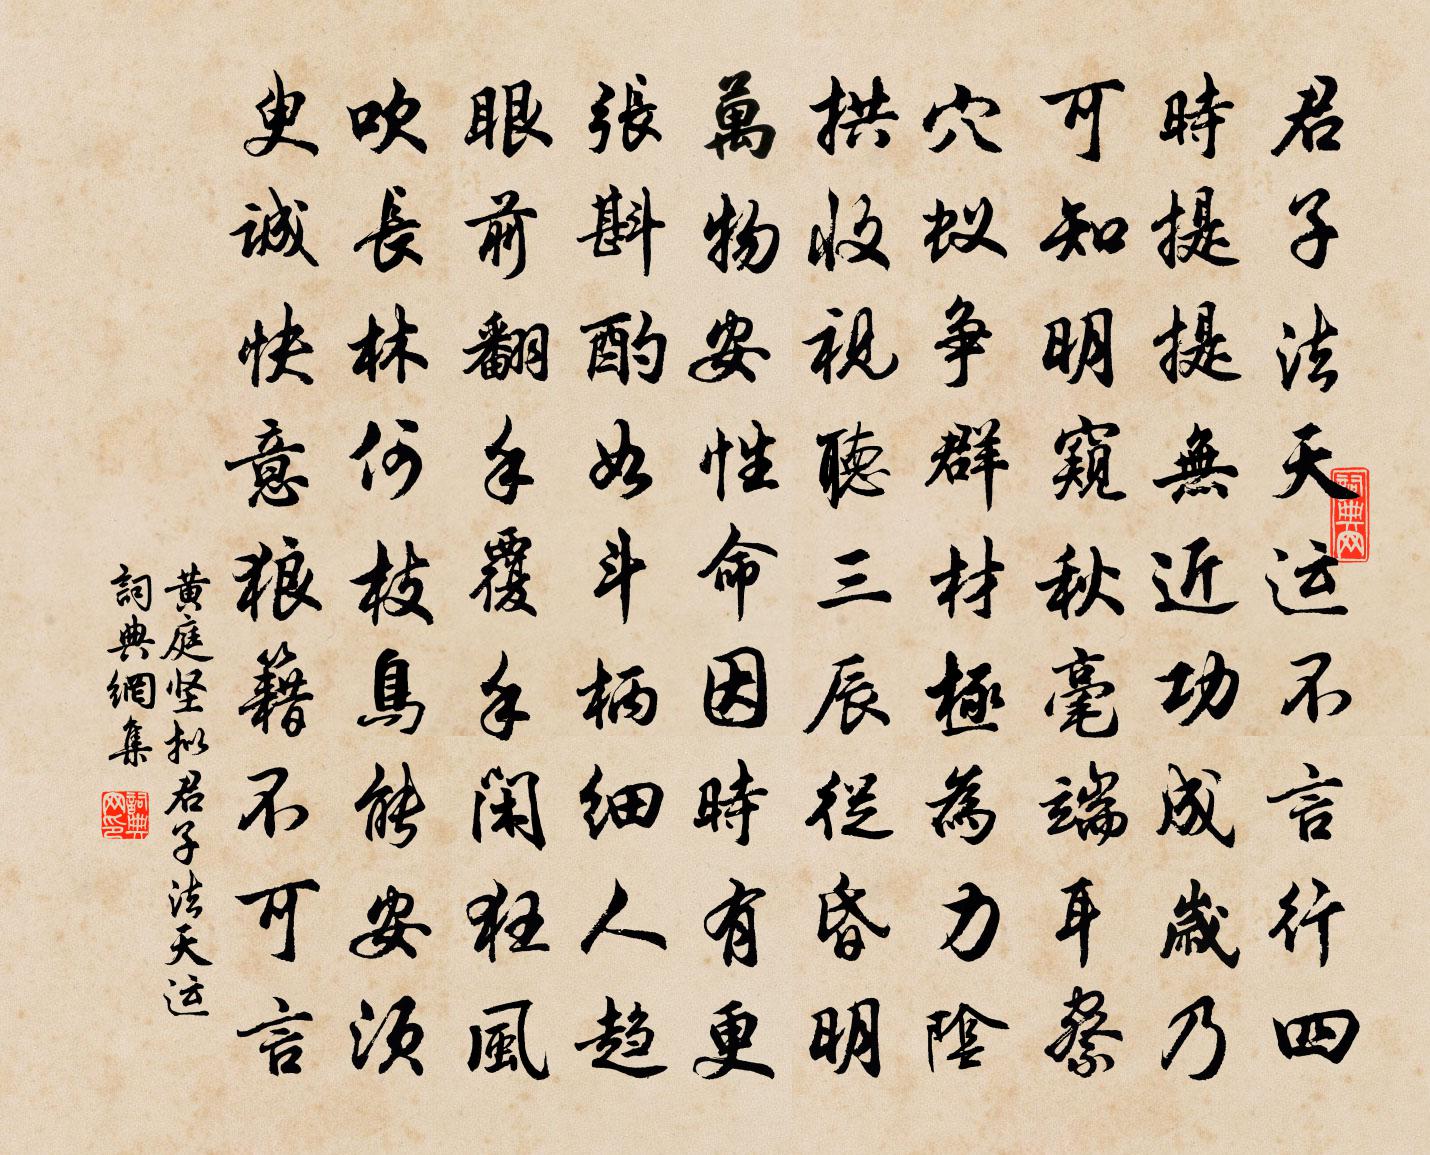 君子法天运不言行四
時提提無近功成歲乃
可知明窺秋毫端耳察
穴蚁争群材極為力陰
拱收視聽三辰從昏明
萬物安性命因時有更
張斟酌如斗柄細人趋
眼前翻手覆手閑狂風
吹長林何枝鳥能安須
臾誠快意狼籍不可言
黄庭坚拟君子法天运
詞典網集
詞典网
詞典网印